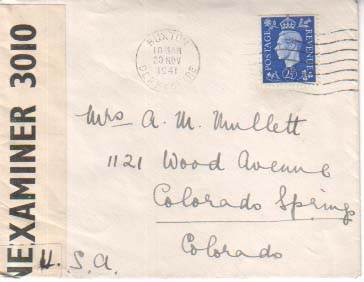 EXAMINER 3010
BUXTON
20 NOV
1941
DERBYSHIRE
POSTAGE
REVENUE
2½D
Mrs A. M. Mullett
1121 Wood Avenue
Colorado Springs
Colorado
U. S. A.